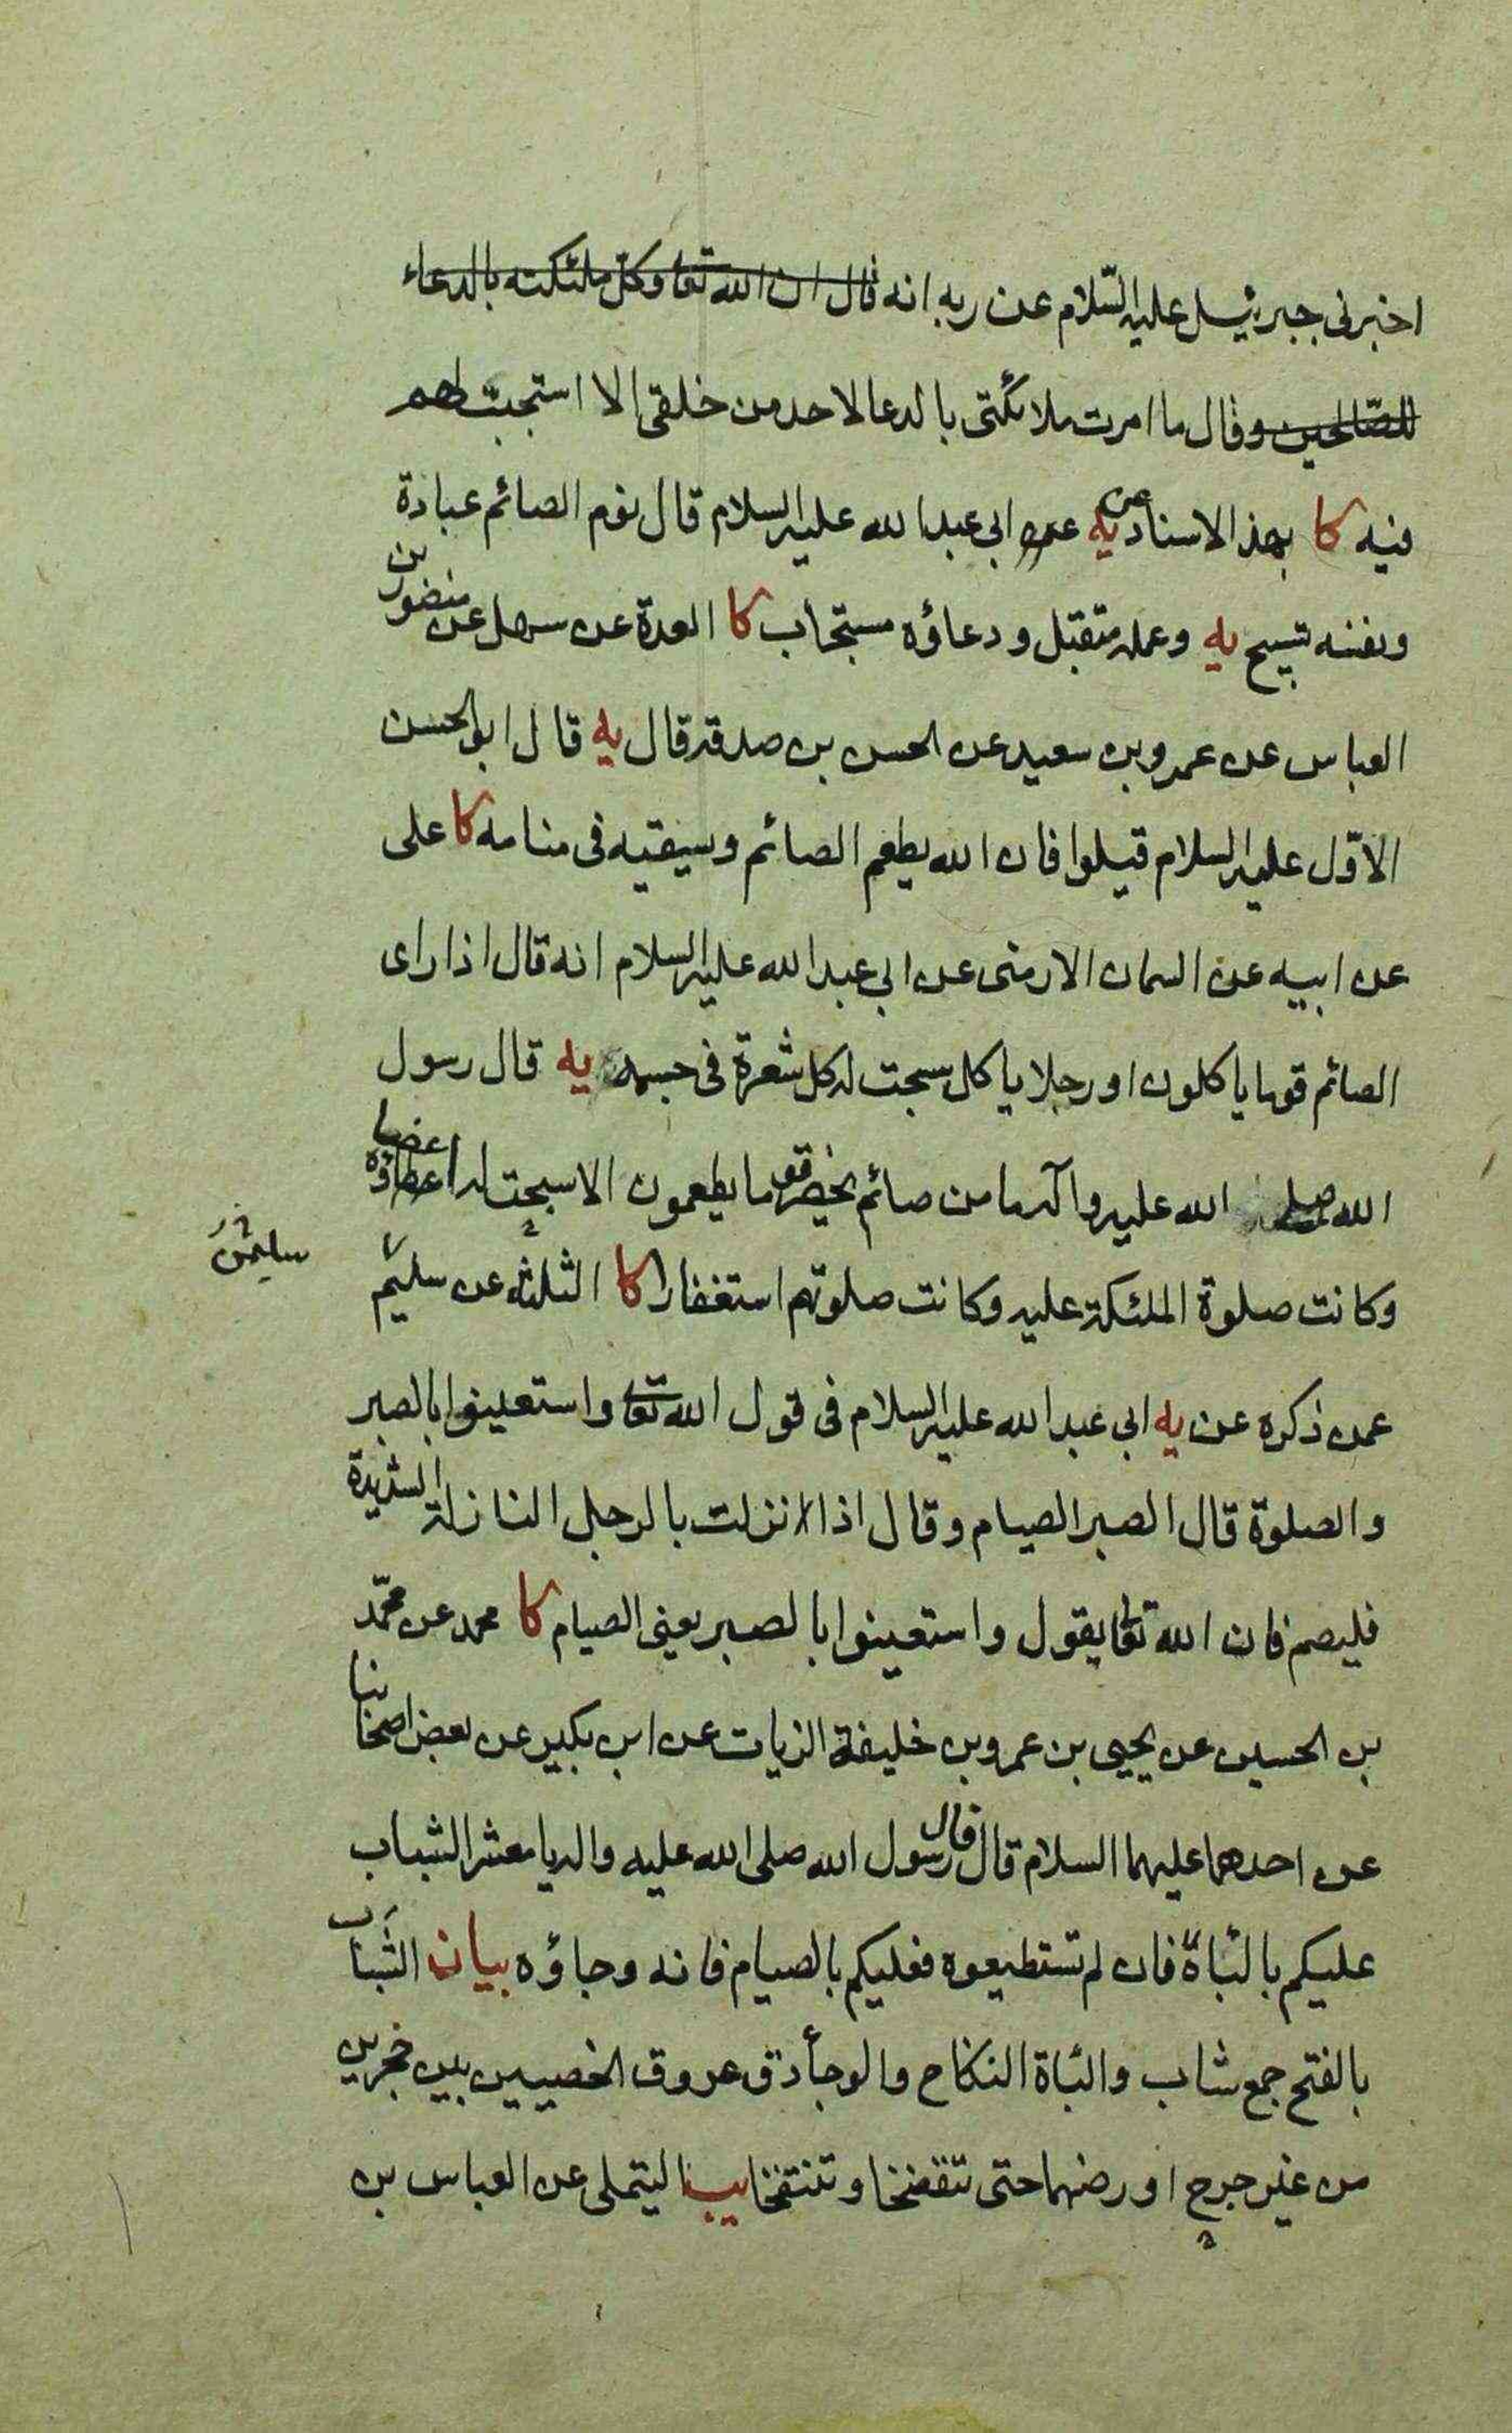 اخبرنى جبرئيل عليه السّلام عن ربه انه قال ان الله تعا وكّل ملئكته بالدعاء
للصّالحين وقال ما امرت ملائكتى بالدعا لاحد من خلقى الا استجبت لهم
فيه كا بهذ الاسناد يه عن ابى عبد الله عليه السلام قال نوم الصائم عبادة
ونفسه تسبيح يه وعمله متقبل ودعاؤه مستجاب كا العدة عن سهل عن منصور بن
العباس عن عمرو بن سعيد عن الحسن بن صدقة قال يه قال ابوالحسن
الاوّل عليه السلام قيلوا فان الله يطعم الصائم ويسقيه فى منامه كا على
عن ابيه عن السمان الارمنى عن ابى عبد الله عليه السلام انه قال اذا راى
الصائم قوما ياكلون او رجلا ياكل سبحت له كل شعرة فى جسده يه قال رسول
الله صلى الله عليه وآله ما من صائم يحضر قوما يطعمون الا سبحت له اعضاؤه
وكانت صلوة الملئكة عليه وكانت صلوتهم استغفارا كا الثلثة عن سليم
عمن ذكره عن يه ابى عبد الله عليه السلام فى قول الله تعا واستعينوا بالصبر
والصلوة قال الصبر الصيام وقال اذا نزلت بالرجل النازلة الشديدة
فليصم فان الله تعا يقول واستعينوا بالصبر يعنى الصيام كا محمد عن محمّد
بن الحسين عن يحيى بن عمرو بن خليفة الزيات عن ابن بكير عن بعض اصحابنا
عن احدهما عليهما السلام قال قال رسول الله صلى الله عليه واله يا معشر الشباب
عليكم بالباة فان لم تستطيعوه فعليكم بالصيام فانه وجاؤه بيان الشباب
بالفتح جمع شاب والباة النكاح والوجأ دق عروق الخصيين بين حجرين
من غير جرح او رضهما حتى تتفضخا وتنتفخا يب التيملى عن العباس بن